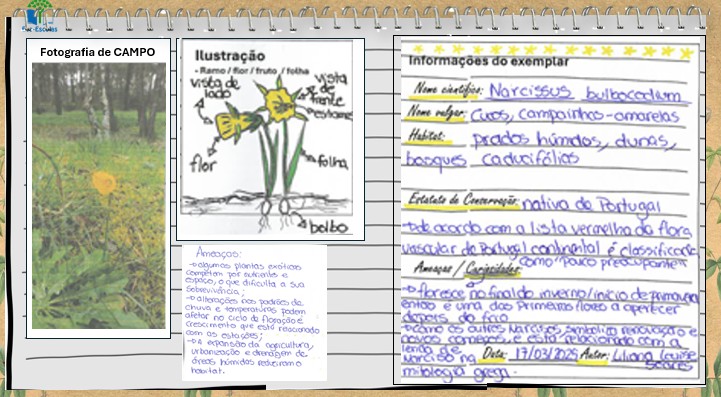 Eco-Escolas
Fotografia de CAMPO
Ilustração
- Ramo / flor / fruto / folha
vista de lado
vista de frente
flor
folha
bolbo
Ameaças:
→ algumas plantas exóticas
competem por nutrientes e
espaço, o que dificulta a sua
sobrevivência;
→ alterações nos padrões de
chuva e temperatura podem
afetar no ciclo da floração e
crescimento que está relacionado
com as estações;
→ A expansão da agricultura,
urbanização e drenagem de
áreas húmidas reduziram o
habitat.
Informações do exemplar
Nome científico: Narcissus bulbocodium
Nome vulgar: Cucos, campainhas-amarelas
Habitat: prados húmidos, dunas,
bosques caducifólias
Estatuto de Conservação: nativa de Portugal
→ de acordo com a lista vermelha da flora
vascular de Portugal continental é classificada
como "Pouco preocupante"
Ameaças / Curiosidades
→ floresce no final do inverno/início de primavera
então é uma das primeiras flores a aparecer
depois do frio
→ como os outros Narcisos simboliza renovação e
novos começos, e está relacionado com a
lenda de
Narciso na
mitologia grega.
Data: 17/03/2025 Autor: Liliana Louise
Soares